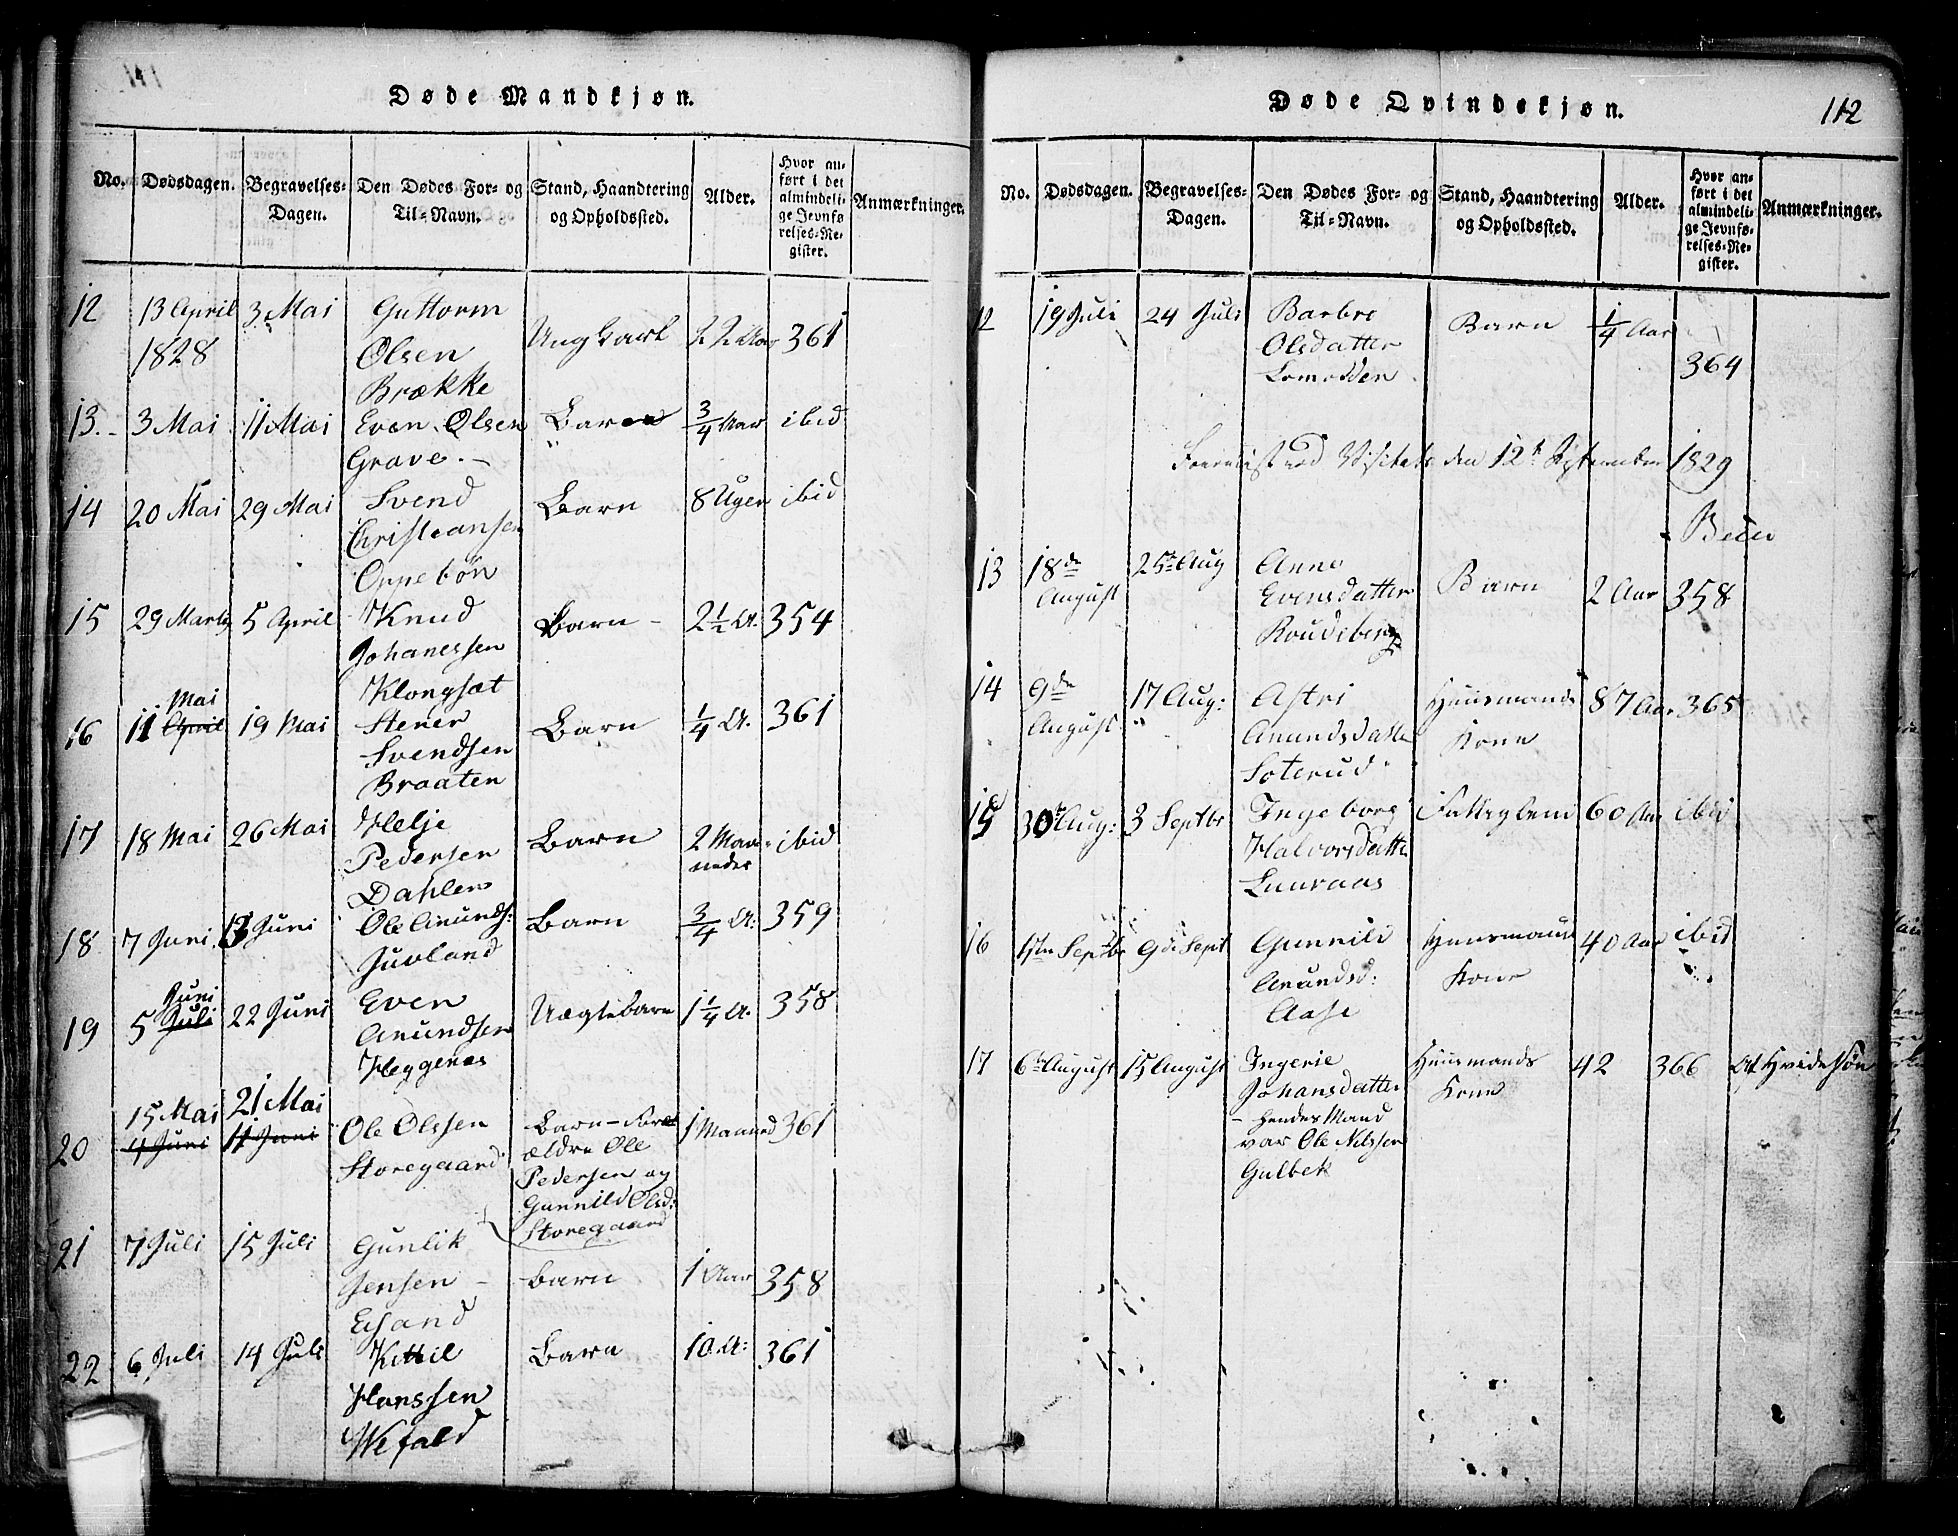 Døde Mandkjøn.
No. Dødsdagen. Begravelses-Dagen. Den Dødes For- og Til-Navn. Stand, Haandtering og Opholdssted. Alder. Hvor anført i det almindelige Jevnførelses-Register. Anmærkninger.
12 13 April 1828 3 Mai Guttorm Olsen Brække Ungkarl 22 Aar 361
13. 3 Mai 11 Mai Even Olsen Grave. Barn 3/4 Aar ibid
14 20 Mai 29 Mai Svend Christiansen Oppebøn Barn 8 Uger ibid
15 29 Marts 5 April Knud Johanessen Klongsæt Barn 2 1/2 A. 354
16 11 Mai April 19 Mai Stener Svendsen Braaten Barn 1/4 A. 361
17 18 Mai 26 Mai Helje Pedersen Dahlen Barn 2 Maaneder ibid
18 7 Juni 13 Juni Ole Anunds: Juvland Barn 3/4 A. 359
19 5 Juni Juli 22 Juni Even Anundsen Heggenæs Uægtebarn 1 1/4 A. 358
20 15 Mai 4 Juni 21 Mai 11 Juni Ole Olssen Storegaard Barn - Forældre Ole Pedersen og Gunnild Olsd: Storegaard 1 Maaned 361
21 7 Juli 15 Juli Gunlik Jensen Barn 1 Aar 358
22 6 Juli 14 Juli Kittil Hanssen Wefald Barn 10 A: 361
Døde Qvindekjøn.
112
No. Dødsdagen. Begravelses-Dagen. Den Dødes For- og Til-Navn. Stand, Haandtering og Opholdssted. Alder. Hvor anført i det almindelige Jevnførelses-Register. Anmærkninger.
12 19 Juli 24 Juli Barbro Olsdatter Barn 1/4 Aar 364
ved Visitats den 12t September 1829
13 18de August 25t Aug Anne Evensdatter Roudeberg Barn 2 Aar 358
14 9de August 17 Aug: Astri Anundsdatte Soterud Huusmands Kone 87 Aar 365
15 30t Aug: 3 Septbr Ingeborg Halvorsdatte Luuraas Fattiglem 60 Aar ibid
16 1ste Septbr 9de Sept Gunnild Anundsd: Aase Huusmands Kone 40 Aar ibid
17 6te August 15 August Ingerie Johansdatter - hendes Mand var Ole Nilssen Gulbek Huusmands Kone 42 366 Af Hvidesøn